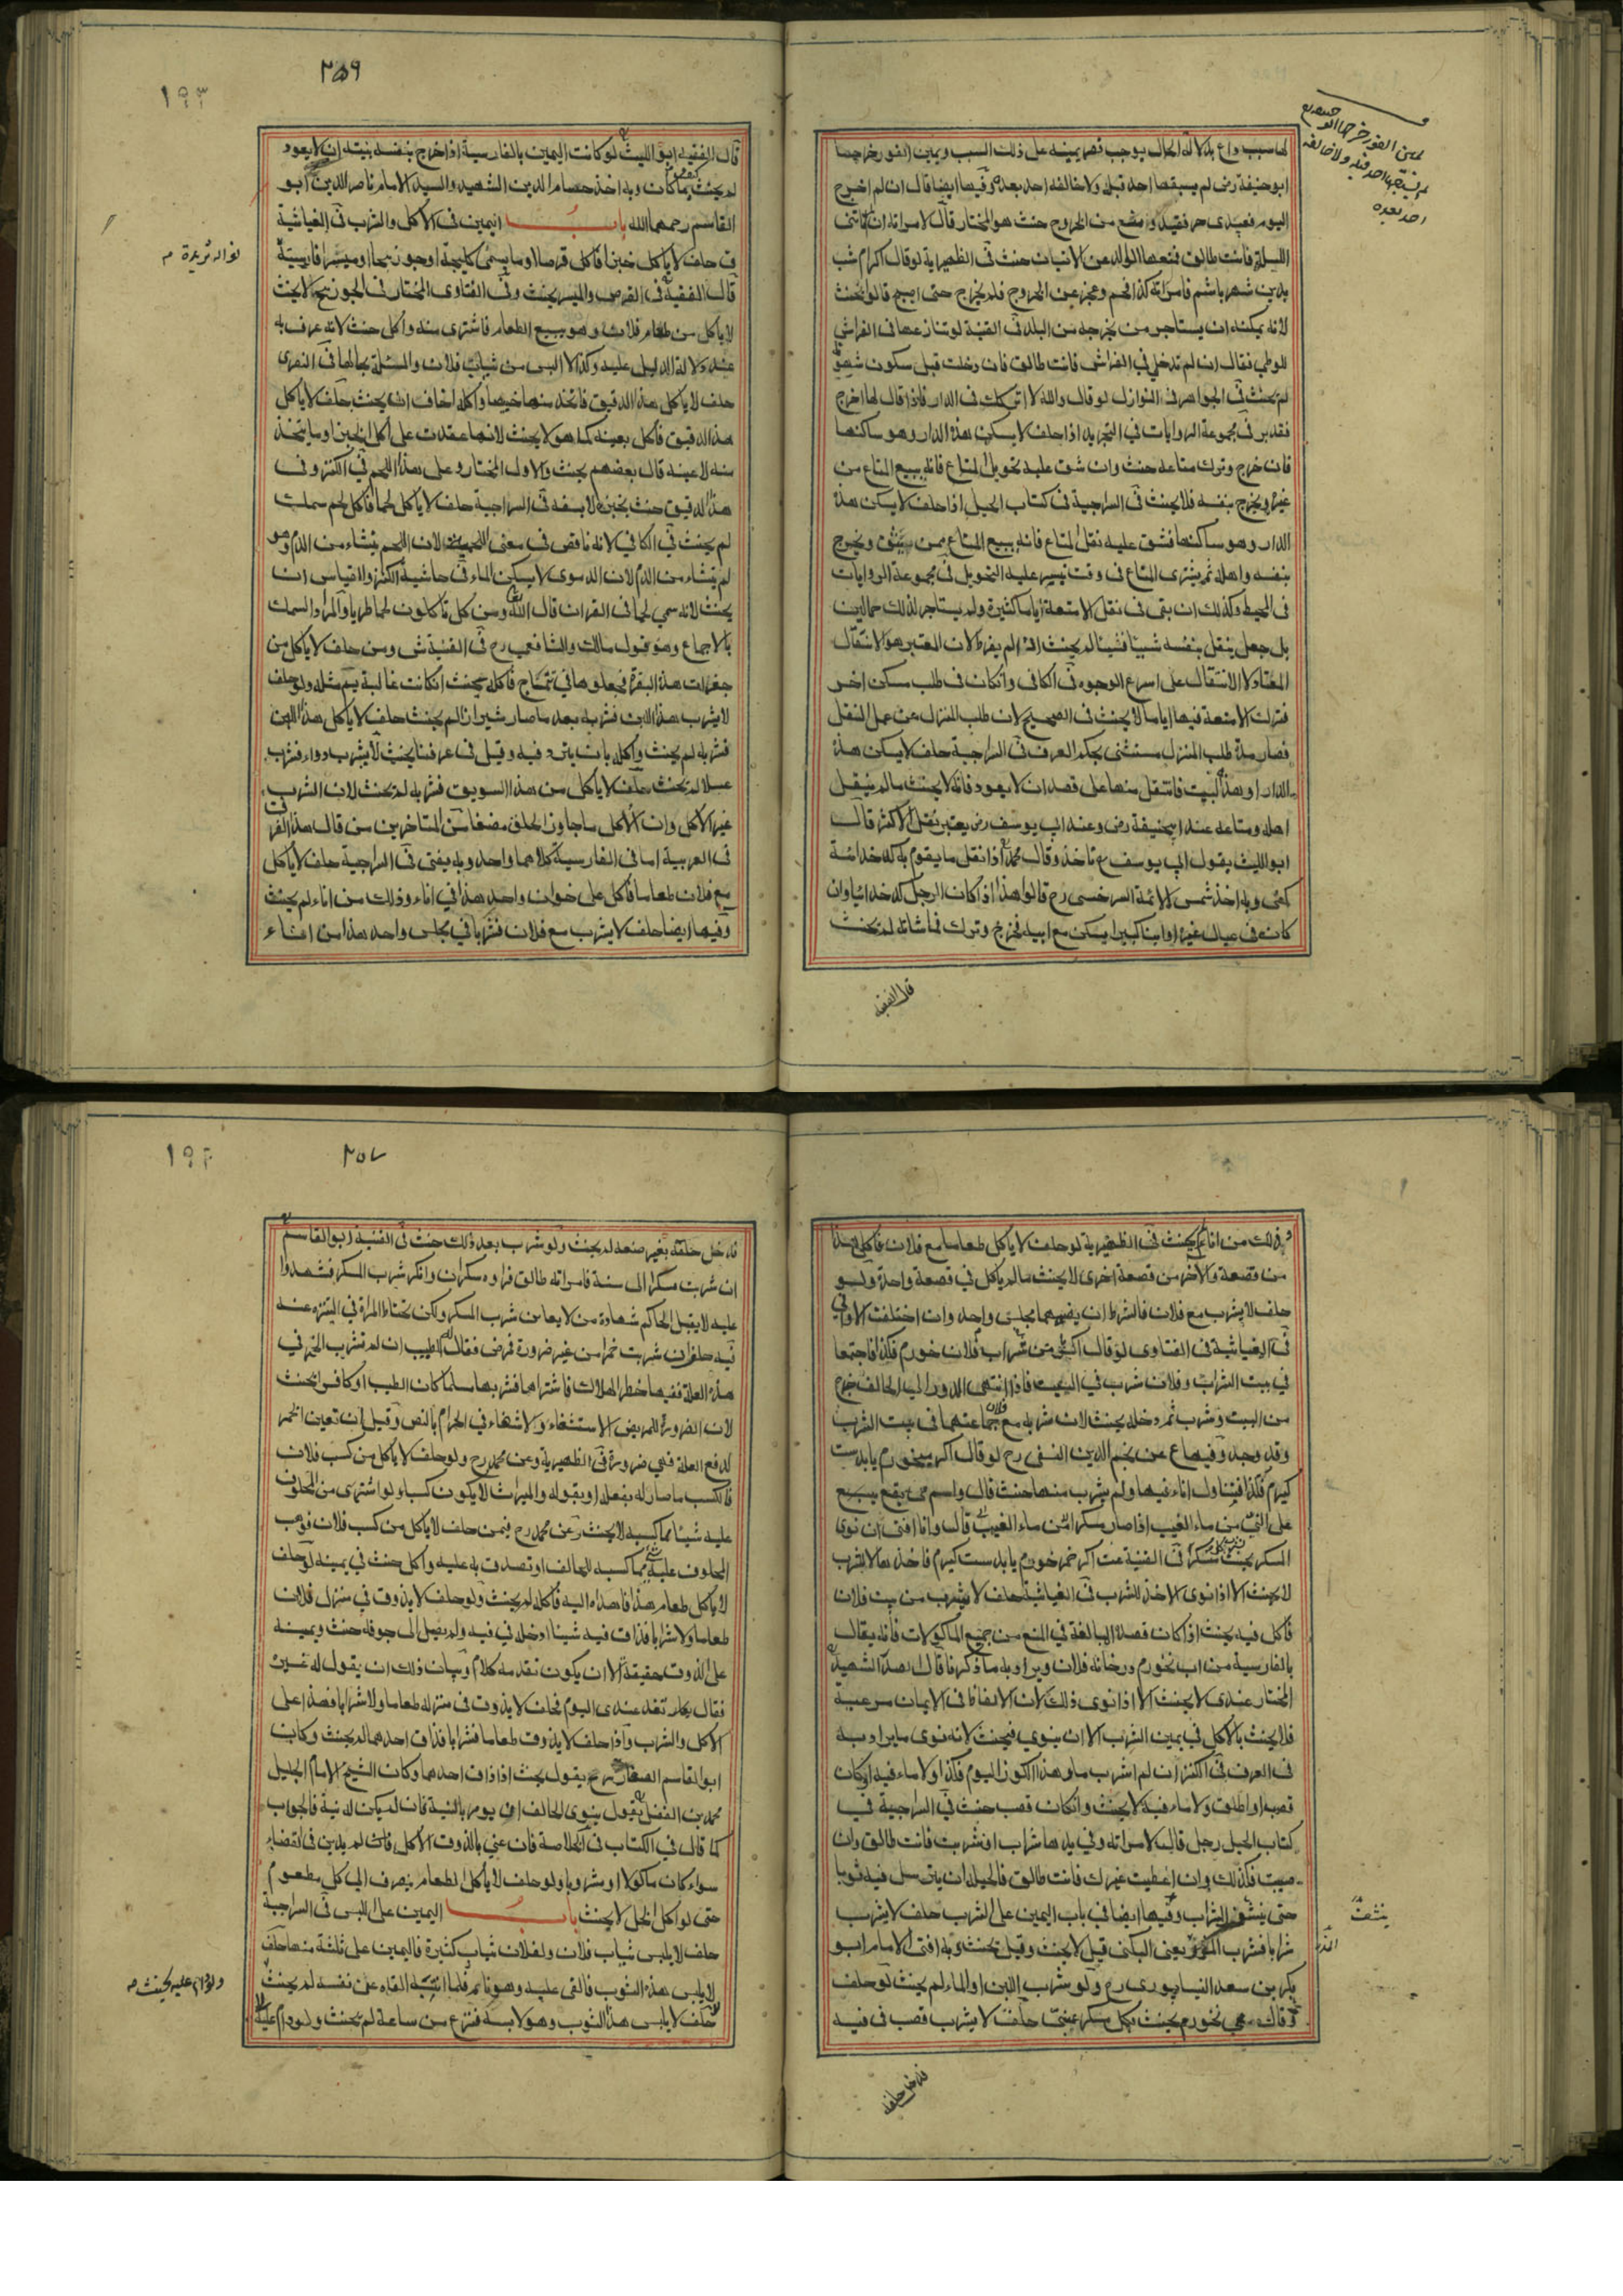 لها سبب واع بدلالة الحال يوجب قصر يمينه على ذلك السبب ويمين الفور خرجها
ابو حنيفة رض لم يسبقها احد قبله ولا خالفه احد بعده وفيها ايضا قال ان لم اخرج
اليوم فعبدى حر فقيد ومنع من الخروج حنث هو المختار قال لامراته ان لم تاتنى
الليلة فانت طالق فمنعها الوالد عن الاتيان حنث فى الظهيرية لو قال اكر امشب
بدين شهر باشم فامراته كذا فحم وعجز عن الخروج فلم يخرج حتى اصبح قالوا يحنث
لانه يمكنه ان يستاجر من يخرجه من البلد فى القنية لو تنازعها فى الفراش
للوطى فقال ان لم تدخلي فى الفراش فانت طالق فان دخلت قبل سكون شهوته
لم يحنث فى الجواهر فى النوازل لو قال والله لا اتركك فى الدار فاذا قال لها اخرج
فقد بر فى مجموعة الروايات فى التجريد اذا حلف لا يسكن هذه الدار وهو ساكنها
فان خرج وترك متاعه حنث وان شق عليه تحويل المتاع فانه يبيع المتاع من
غيره ويخرج بنفسه فلا يحنث فى السراجية فى كتاب الحيل اذا حلف لا يسكن هذه
الدار وهو ساكنها فشق عليه نقل المتاع فانه يبيع المتاع ممن يثق ويخرج
بنفسه واهله ثم يشترى المتاع فى وقت تيسر عليه التحويل فى مجموعة الروايات
فى المحيط وكذلك ان بقى فى نقل الامتعة اياما كثيرة ولم يستاجر لذلك حمالين
بل جعل ينقل بنفسه شيئا فشيئا لم يحنث اذا لم يفرط لان المعتبر هو الانتقال
المعتاد لا الانتقال على اسرع الوجوه فى الكافى وان كان فى طلب مسكن اخر
فترك الامتعة فيها اياما لا يحنث فى الصحيح لان طلب المنزل من عمل النقل
فصار مدة طلب المنزل مستثنى بحكم العرف فى السراجية حلف لا يسكن هذه
الدار او هذا البيت فانتقل منها على قصد ان لا يعود فانه لا يحنث ما لم ينقل
اهله ومتاعه عند ابيحنيفة رض وعند ابى يوسف رض يعتبر نقل الاكثر قال
ابو الليث بقول ابى يوسف رح ناخذ وقال محمد رح اذا نقل ما يقوم به كدخدائية
كفى وبه اخذ شمس الائمة السرخسى رح قالوا هذا اذا كان الرجل كدخدائيا وان
كان فى عيال غيره او ابنا كبيرا يسكن مع ابيه فخرج وترك قماشاته لم يحنث
قال الفقيه
يمين الفور خرجها ابو حنيفة
لم يسبقها احد قبله ولا خالفه
احد بعده
٢٥٩
١٩٣
قال الفقيه ابو الليث رح لو كانت اليمين بالفارسية اذا خرج بنفسه بنيته ان لا يعود
لم يحنث كيفما كان وبه اخذ حسام الدين الشهيد والسيد الامام ناصر الدين ابو
القاسم رحمهما الله باب اليمين فى الاكل والشرب فى الغياثية
ف حلف لا ياكل خبزا فاكل قرصا او ما يسمى كليجة او جوزينجا او ميسرا فارسيته
قال الفقيه فى القرص والميسر يحنث وفى الفتاوى المختار فى الجوزينج لا يحنث
لا ياكل من طعام فلان وهو يبيع الطعام فاشترى منه واكل حنث لانه عرف به
عنه دلالة الدليل عليه وكذا لا البس من ثياب فلان والمسئلة بحالها فى النصرى
حلف لا ياكل هذا الدقيق فاتخذ منها خبيصا واكله اخاف ان يحنث حلف لا ياكل
هذا الدقيق فاكل بعينه كما هو لا يحنث لانها عقدت على اكل الخبز او ما يتخذ
منه لا عينه قال بعضهم يحنث والاول المختار وعلى هذا اللحم فى الكنز وفى
هذا الدقيق حنث بخبزه لا بسفه فى السراجية حلف لا ياكل لحما فاكل لحم سمك
لم يحنث فى الكافى لانه ناقص فى معنى اللحمية لان اللحم ينشاء من الدم وهو
لم ينشاء من الدم لان الدموى لا يسكن الماء فى حاشية الكنز والقياس ان
يحنث لانه سمي لحما فى القران قال الله تعالى ومن كل تاكلون لحما طريا والمراد السمك
بالاجماع وهو قول مالك والشافعى رح فى القنية ش ومن حلف لا ياكل من
جغرات هذه البقرة فجعلوها فى تتماج فاكله يحنث ان كانت غالبة يم مثله ولو حلف
لا يشرب هذا اللبن فشربه بعد ما صار شيرازا لم يحنث حلف لا ياكل هذا اللبن
فشربه لم يحنث واكله بان يثرد فيه وقيل فى عرفنا يحنث لا يشرب دواء فشرب
عسلا لم يحنث حلف لا ياكل من هذا السويق فشربه لم يحنث لان الشرب
غير الاكل وان الاكل ما جاوز الحلق مضغا من المتاخرين من قال هذا الفرق
فى العربية اما فى الفارسية كلاهما واحد وبه يفتى فى السراجية حلف لا ياكل
مع فلان طعاما فاكل على خوان واحد هذا فى اناء وذلك من اناء لم يحنث
وفيها ايضا حلف لا يشرب مع فلان فشربا فى مجلس واحد هذا من اناء
نواله ثريدة م
وذلك من اناء يحنث فى الظهيرية لو حلف لا ياكل طعاما مع فلان فاكل هذا
من قصعة والاخر من قصعة اخرى لا يحنث ما لم ياكل فى قصعة واحدة ولو
حلف لا يشرب مع فلان فالشرط ان يضمهما مجلس واحد وان اختلفت الاوانى
فى الغياثية فى الفتاوى لو قال اكر من شراب فلان خورم فكذا فاجتمعا
فى بيت الشراب وفلان شرب فى البيت فاذا انتهى الدور الى الحالف خرج
من البيت وشرب ثم دخله يحنث لان شربه مع فلان جماعتهما فى بيت الشرب
وقد وجد وفيها ع عن نجم الدين النسفى رح لو قال اكر ميخورم يا بدست
كيرم فكذا فتناول اناء فيها ولم يشرب منها حنث قال واسم مى يقع
على النى من ماء العنب اذا صار مسكرا لا من ماء العنب قال وانا افتى ان نوى
المسكر يحنث بكل مسكر فى القنية عت اكر خمر خورم يا بدست كيرم فاخذها لا للشرب
لا يحنث الا اذا نوى الاخذ للشرب فى الغياثية حلف لا يشرب من بيت فلان
فاكل فيه يحنث اذا كان قصده المبالغة فى المنع من جميع الماكولات فانه يقال
بالفارسية من اب نخورم در خانه فلان ويراد به ما ذكرنا قال الصدر الشهيد
المختار عندى لا يحنث الا اذا نوى ذلك لان الالفاظ فى الايمان مرعية
فلا يحنث بالاكل فى يمين الشرب الا ان ينوى فيحنث لانه نوى ما يراد به
فى العرف فى الكنز ان لم اشرب ماء هذا الكوز اليوم فكذا ولا ماء فيه او كان
فصب او اطلق ولا ماء فيه لا يحنث وان كان فصب حنث فى السراجية فى
كتاب الحيل رجل قال لامراته وفى يدها شراب ان شربت فانت طالق وان
صببت فكذلك وان اعطيت غيرك فانت طالق فالحيلة ان يرسل فيه ثوبا
حتى ينشف الشراب وفيها ايضا فى باب اليمين على الشرب حلف لا يشرب
شرابا فشرب يعنى البكنى قيل لا يحنث وقيل يحنث وبه افتى الامام ابو
بكر بن سعد النيسابورى رح ولو شرب اللبن او الماء لم يحنث لو حلف
وقال مى نخورم يحنث بكل مسكر عنبى حلف لا يشرب فصب فى فيه
فدخل حلقه
ينشف
٢٥٧
١٩٤
فدخل حلقه بغير صنعه لم يحنث ولو شرب بعد ذلك حنث فى القنية ابو القاسم رح
ان شربت مسكرا الى سنة فامراته طالق فراوه سكران وانكر شرب المسكر فشهدوا
عليه لا يقبل الحاكم شهادة من لا يعاين شرب المسكر ولكن تحتاط المراة فى التنزه عنه
فيه حلف ان شربت خمرا من غير ضرورة فمرض فقال الطبيب ان لم تشرب الخمر فى
هذه العلة ففيها خطر الهلاك فاشتراها فشربها مسلما كان الطبيب او كافرا يحنث
لان الضرورة للمريض الاستشفاء ولا شفاء فى الحرام بالنص وقيل ان تعين الخمر
لدفع العلة فهى ضرورة فى الظهيرية وعن محمد رح ولو حلف لا ياكل من كسب فلان
فالكسب ما صار له بفعله او بقوله والميراث لا يكون كسبا ولو اشترى من المحلوف
عليه شيئا مما كسبه لا يحنث وعن محمد رح فيمن حلف لا ياكل من كسب فلان فوهب
المحلوف عليه شيئا مما كسبه للحالف او تصدق به عليه واكل حنث فى يمينه لو حلف
لا ياكل طعام هذا فاهداه اليه فاكله لم يحنث ولو حلف لا يذوق فى منزل فلان
طعاما ولا شرابا فذاق فيه شيئا ادخله فى فيه ولم يصل الى جوفه حنث ويمينه
على الذوق حقيقة الا ان يكون تقدمه كلام وبيان ذلك ان يقول له غيره
فقال تعال تغد عندى اليوم فحلف لا يذوق فى منزله طعاما ولا شرابا فهذا على
الاكل والشرب واذا حلف لا يذوق طعاما وشرابا فذاق احدهما لم يحنث وكان
ابو القاسم الصفار رح يقول يحنث اذا ذاق احدهما وكان الشيخ الامام الجليل
محمد بن الفضل رح يقول ينوى الحالف اى يومر بالنية فان لم يكن له نية فالجواب
كما قال فى الكتاب فى الخلاصة فان عنى بالذوق الاكل فان لم يدين فى القضاء
سواء كان ماكولا او مشروبا ولو حلف لا ياكل الطعام ينصرف الى كل مطعوم
حتى لو اكل الخل لا يحنث باب اليمين على اللبس فى السراجية
حلف لا يلبس ثياب فلان ولفلان ثياب كثيرة فاليمين على ثلثة منها حلف
لا يلبس هذا الثوب فالقى عليه وهو نائم فلما انتبه القاه عن نفسه لم يحنث
حلف لا يلبس هذا الثوب وهو لابسه فنزع من ساعة لم يحنث ولو دام عليه
ولو دام عليه يحنث م